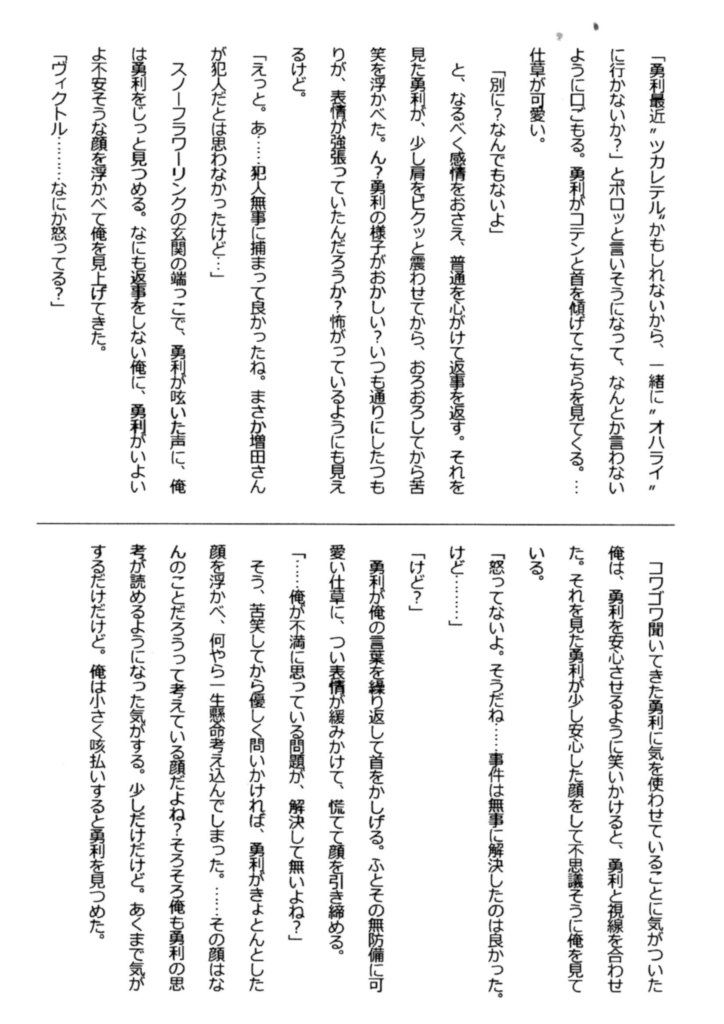 「勇利最近〝ツカレテル〟かもしれないから、一緒に〝オハライ〟
に行かないか?」とポロッと言いそうになって、なんとか言わない
ように口ごもる。勇利がコテンと首を傾げてこちらを見てくる。…
仕草が可愛い。
「別に?なんでもないよ」
と、なるべく感情をおさえ、普通を心がけて返事を返す。それを
見た勇利が、少し肩をビクッと震わせてから、おろおろしてから苦
笑を浮かべた。ん?勇利の様子がおかしい?いつも通りにしたつも
りが、表情が強張っていたんだろうか?怖がっているようにも見え
るけど。
「えっと。あ……犯人無事に捕まって良かったね。まさか増田さん
が犯人だとは思わなかったけど…」
スノーフラワーリンクの玄関の端っこで、勇利が呟いた声に、俺
は勇利をじっと見つめる。なにも返事をしない俺に、勇利がいよい
よ不安そうな顔を浮かべて俺を見上げてきた。
「ヴィクトル………なにか怒ってる?」
コワゴワ聞いてきた勇利に気を使わせていることに気がついた
俺は、勇利を安心させるように笑いかけると、勇利と視線を合わせ
た。それを見た勇利が少し安心した顔をして不思議そうに俺を見て
いる。
「怒ってないよ。そうだね……事件は無事に解決したのは良かった。
けど………」
「けど?」
勇利が俺の言葉を繰り返して首をかしげる。ふとその無防備に可
愛い仕草に、つい表情が緩みかけて、慌てて顔を引き締める。
「……俺が不満に思っている問題が、解決して無いよね?」
そう、苦笑してから優しく問いかければ、勇利がきょとんとした
顔を浮かべ、何やら一生懸命考え込んでしまった。……その顔はな
んのことだろうって考えている顔だよね?そろそろ俺も勇利の思
考が読めるようになった気がする。少しだけだけど。あくまで気が
するだけだけど。俺は小さく咳払いすると勇利を見つめた。